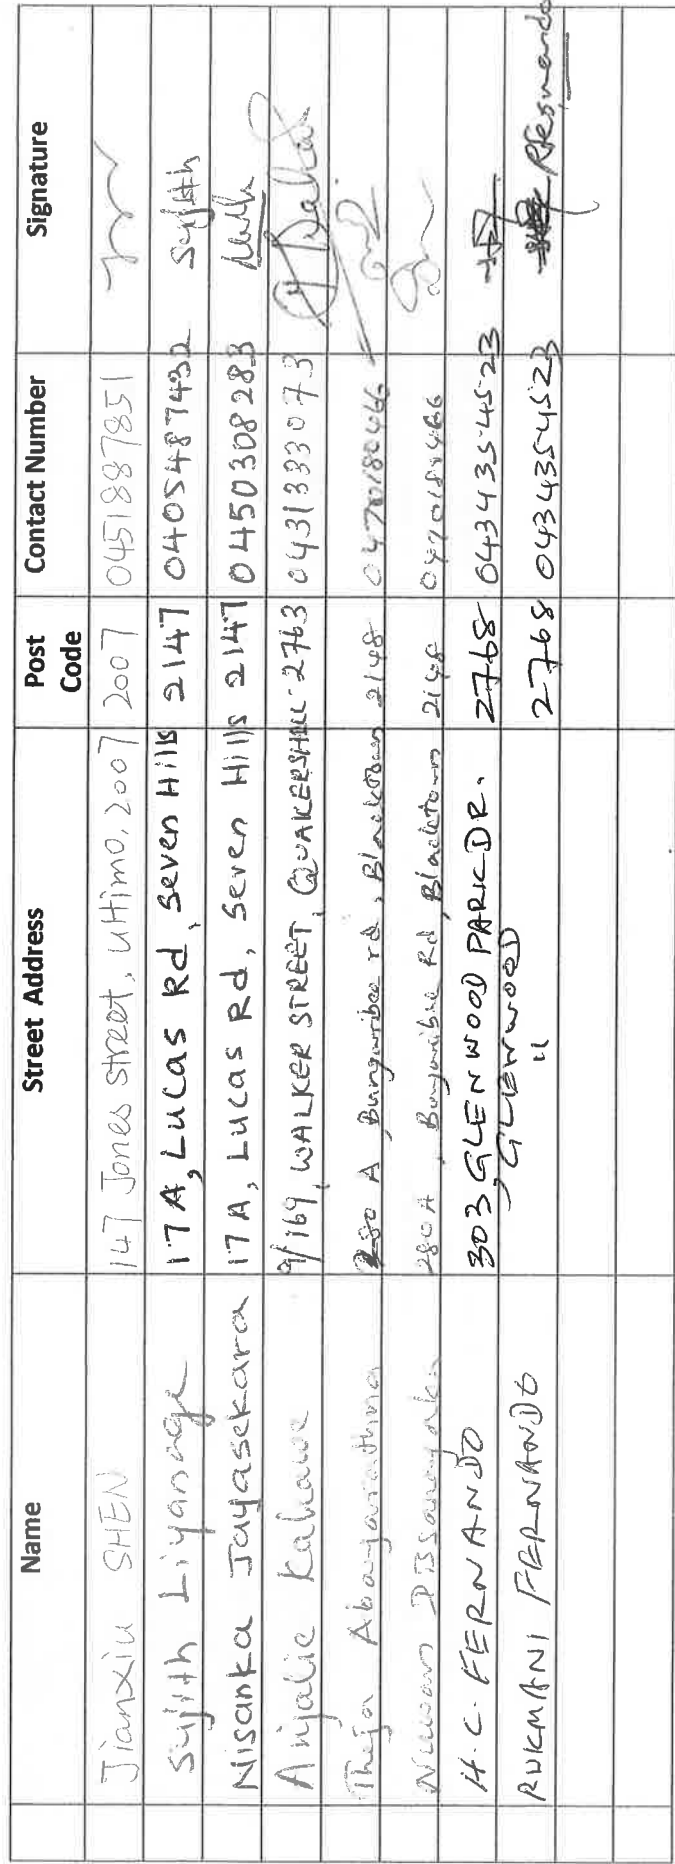 Name Street Address Post Code Contact Number Signature
Jianxin SHEN 147 Jones street, Ultimo, 2007 2007 0451887851
Sujith Liyanage 17A, Lucas Rd, Seven Hills 2147 0405487432 Sujith
Nisanka Jayasekara 17A, Lucas Rd, Seven Hills 2147 0450308283
Anjalie Kahawe 9/169, WALKER STREET, QUAKERSHILL 2763 0431333073
Theja Abayarathna 280 A Bungarribee rd, Blacktown 2148 0470180466
Nuwan Dissanayake 280A, Bungarribee Rd, Blacktown 2148 0470180466
H.C. FERNANDO 303 GLENWOOD PARK DR. 2768 0434354523
, GLENWOOD
RUKMANI FERNANDO " 2768 0434354523 RFernando